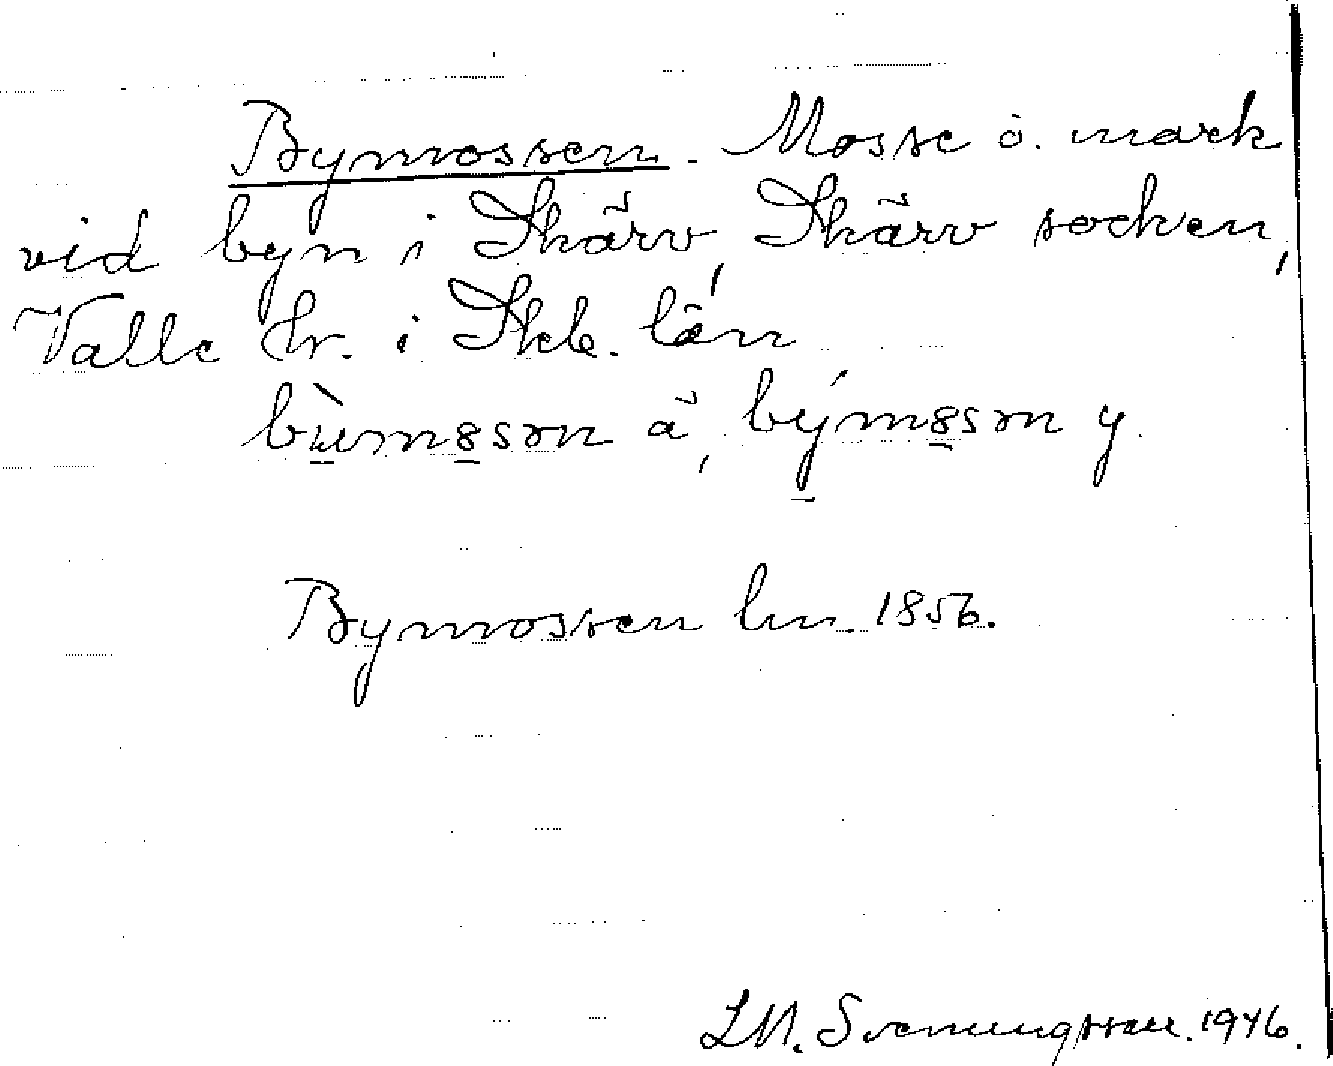 Bymossen. Mosse o. mark
vid byn i Skärv, Skärv socken,
Valle hr. i Skb. län
bùm8sɘn ä, bým8sɘn y.
Bymossen lm. 1856.
LM. Svenungsson. 1946.